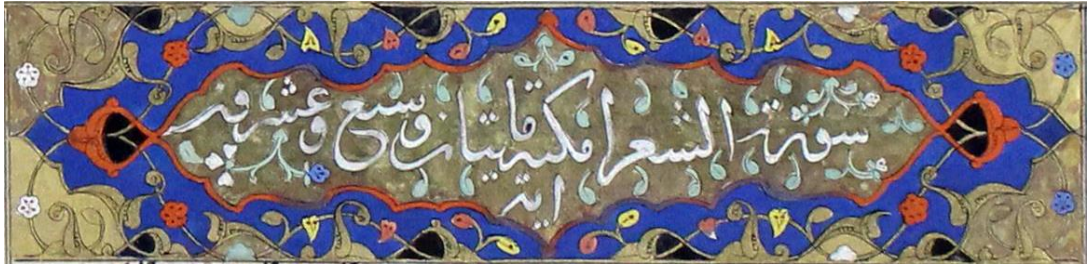 سورة الشعرا مكية مايتان وسبع وعشرون
اية